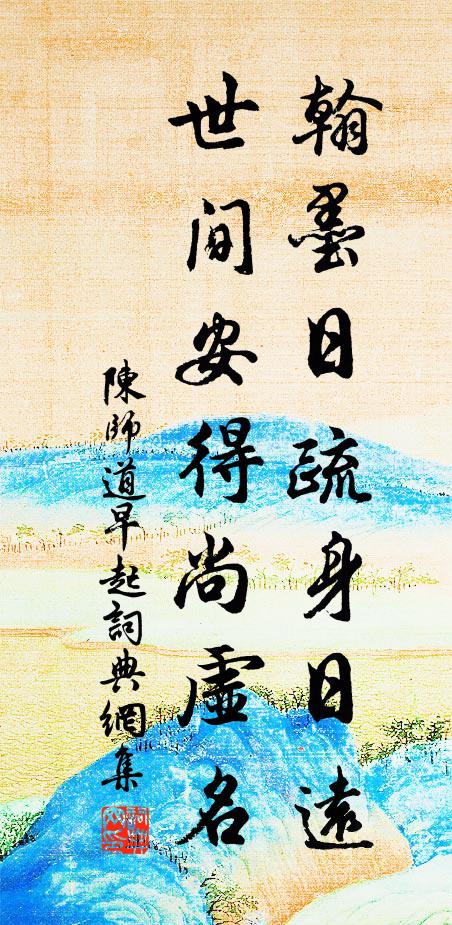 翰墨日疏身日遠
世间安得尚虛名
陳師道早起詞典網集